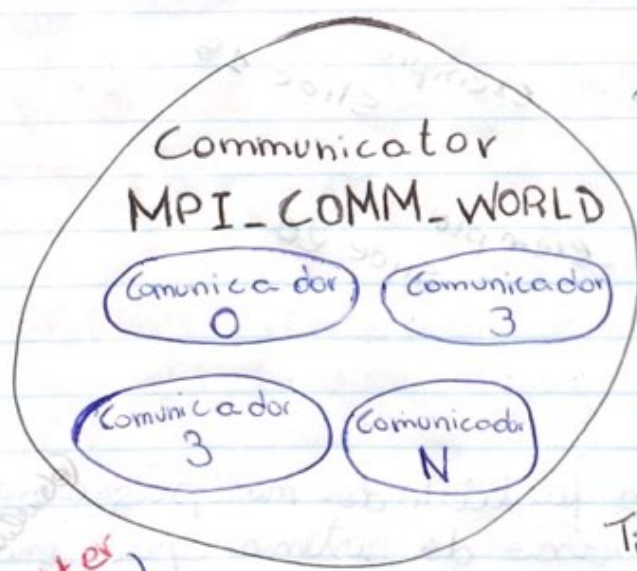 Communicator
MPI_COMM_WORLD
Comunicador
0
Comunicador
3
Comunicador
3
Comunicador
N